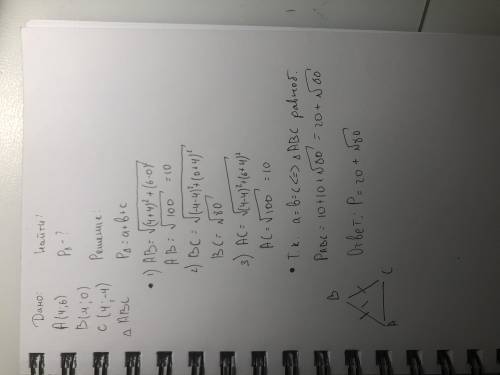 Дано:
A(4;6)
B(4;0)
C(4;-4)
△ABC
Найти:
P△-?
Решение:
P△=a+b+c
• 1) AB=√(4+4)²+(6-0)²
AB=√100=10
2) BC=√(-4-4)²+(0+4)²
BC=√80
3) AC=√(4-4)²+(6+4)²
AC=√100=10
• Т.к. a=b=c<=>△ABC равноб.
PABC=10+10+√80=20+√80
Ответ: P=20+√80
B
A
C